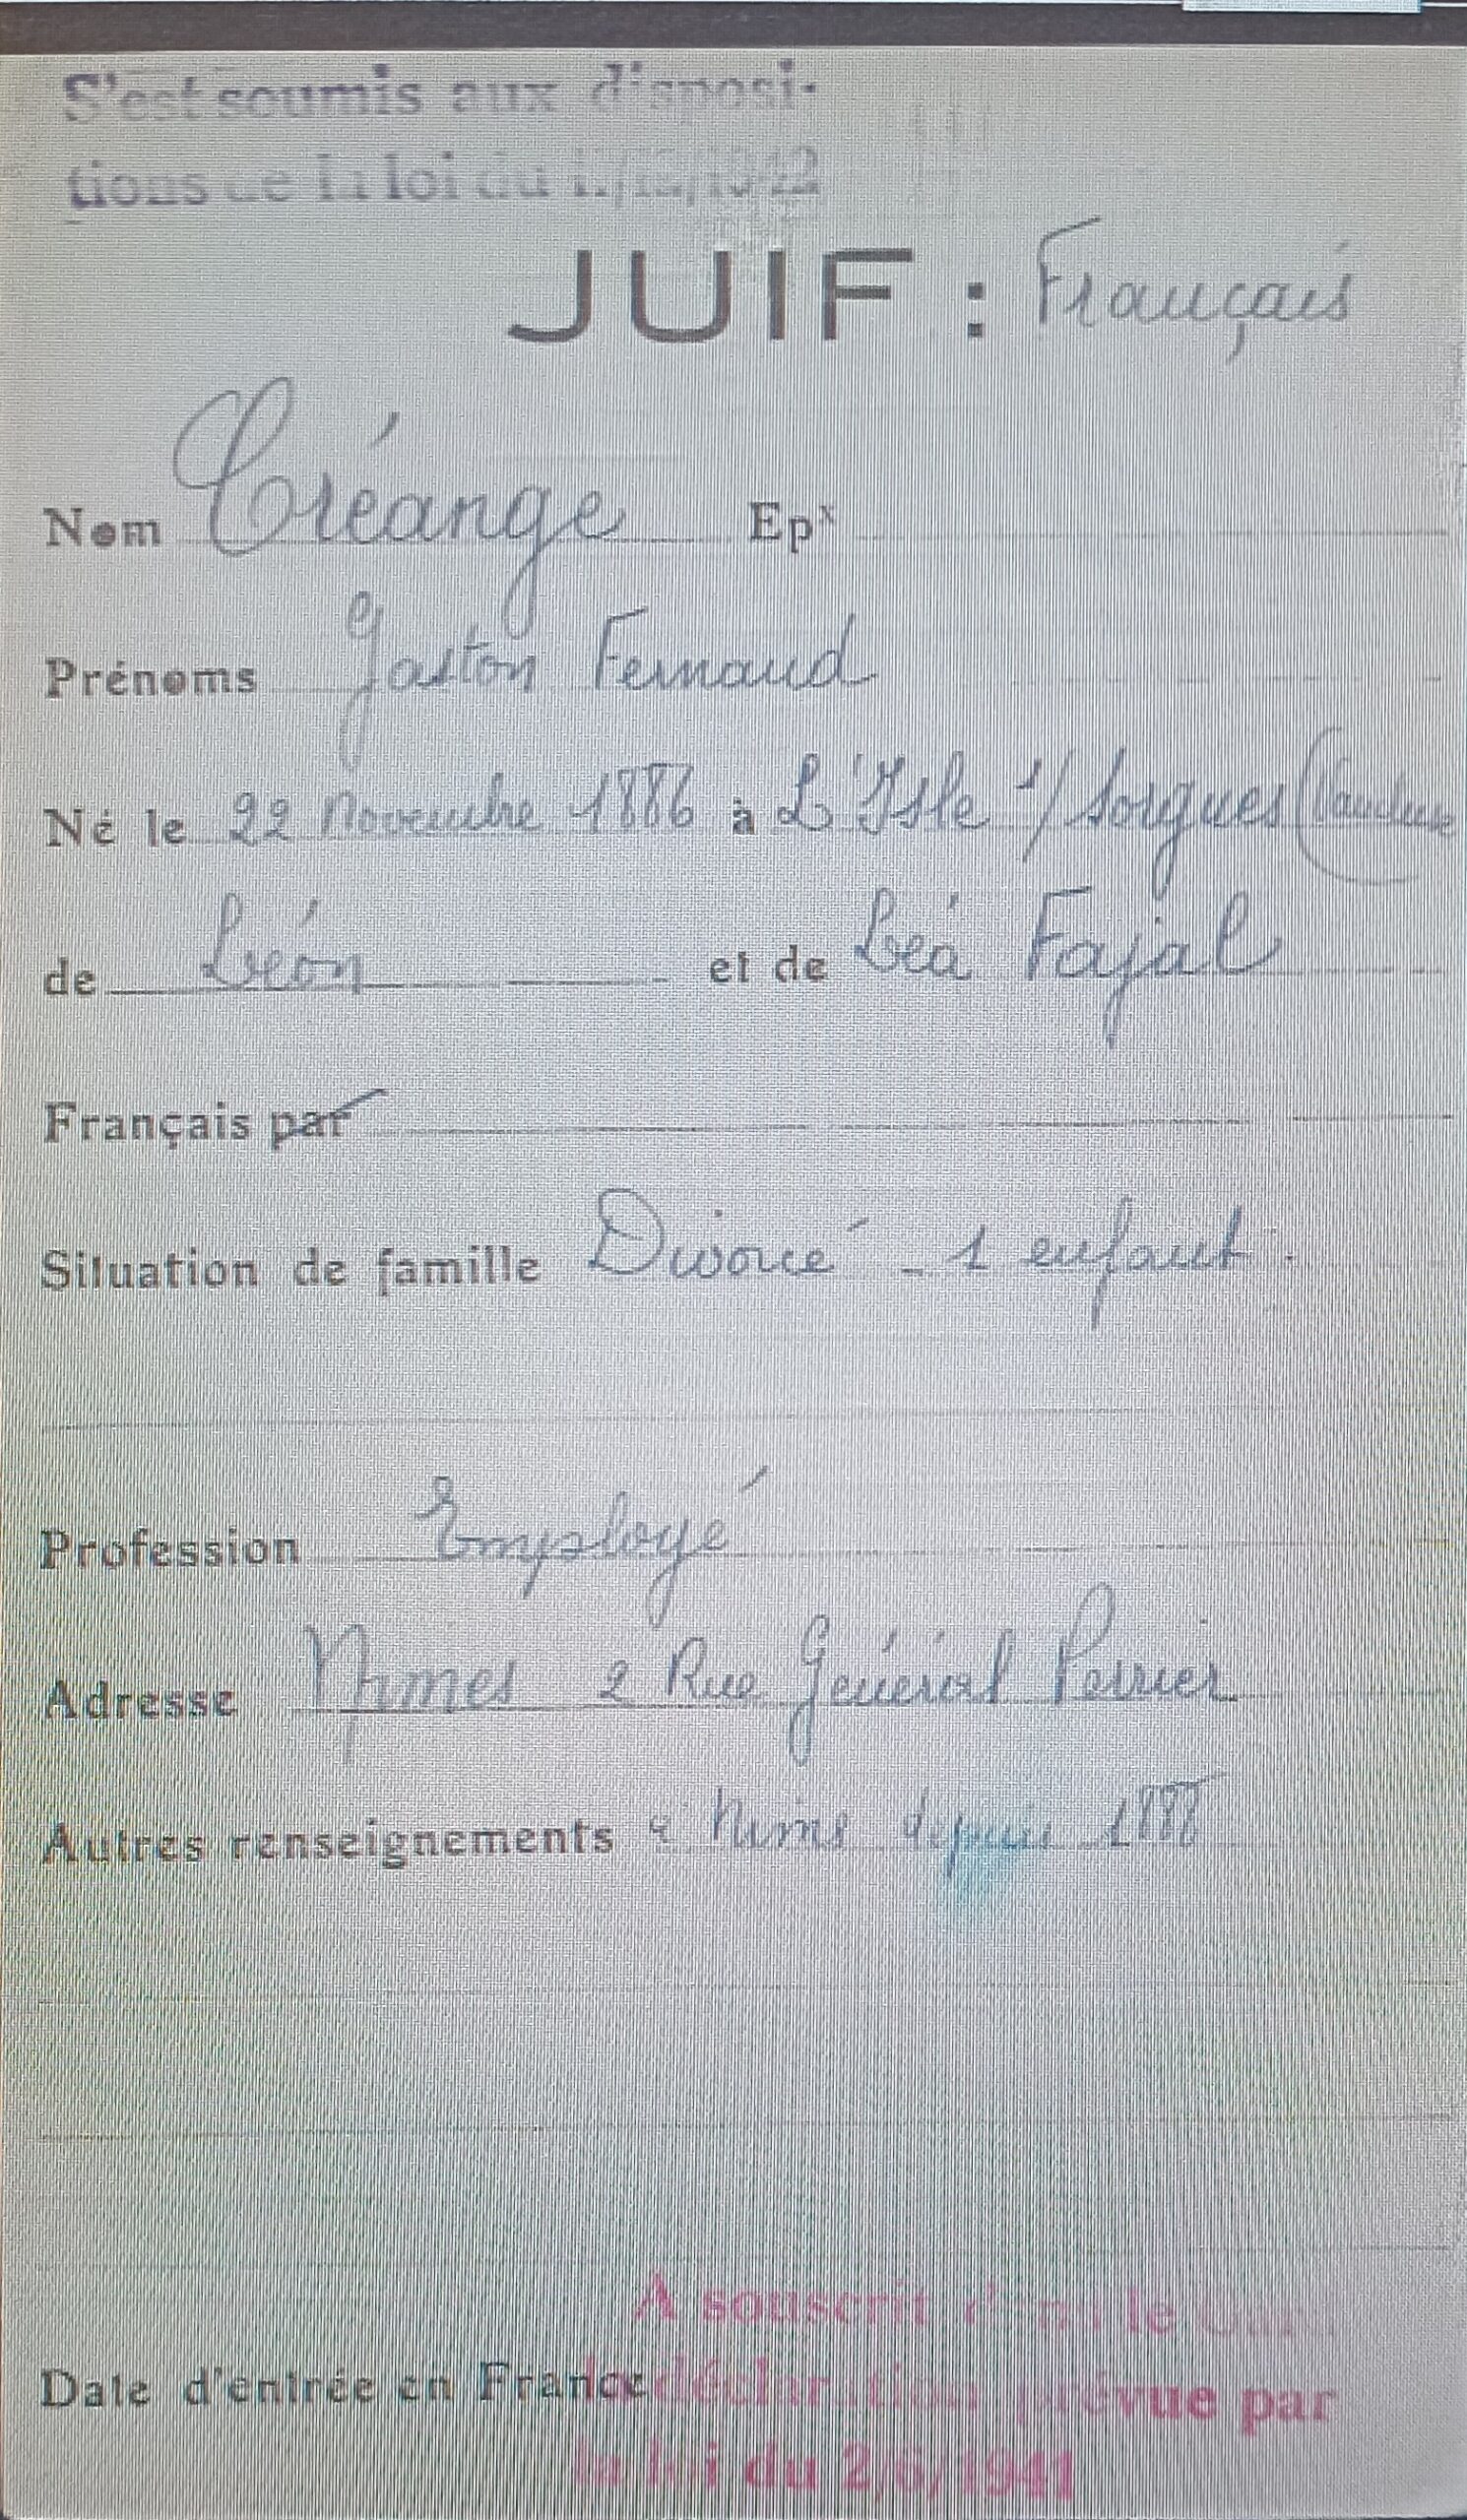 S'est soumis aux disposi-
tions de la loi du 11/12/1942
JUIF : Français
Nom Créange Epx
Prénoms Gaston Fernand
Né le 22 Novembre 1886 à L'Isle s/ Sorgues (Vaucluse
de Léon et de Léa Fajal
Français par
Situation de famille Divorcé - 1 enfant.
Profession Employé
Adresse Nimes 2 Rue Général Perrier
Autres renseignements à Nimes depuis 1888
A souscrit dans le Gard
Date d'entrée en France
la déclaration prévue par
la loi du 2/6/1941